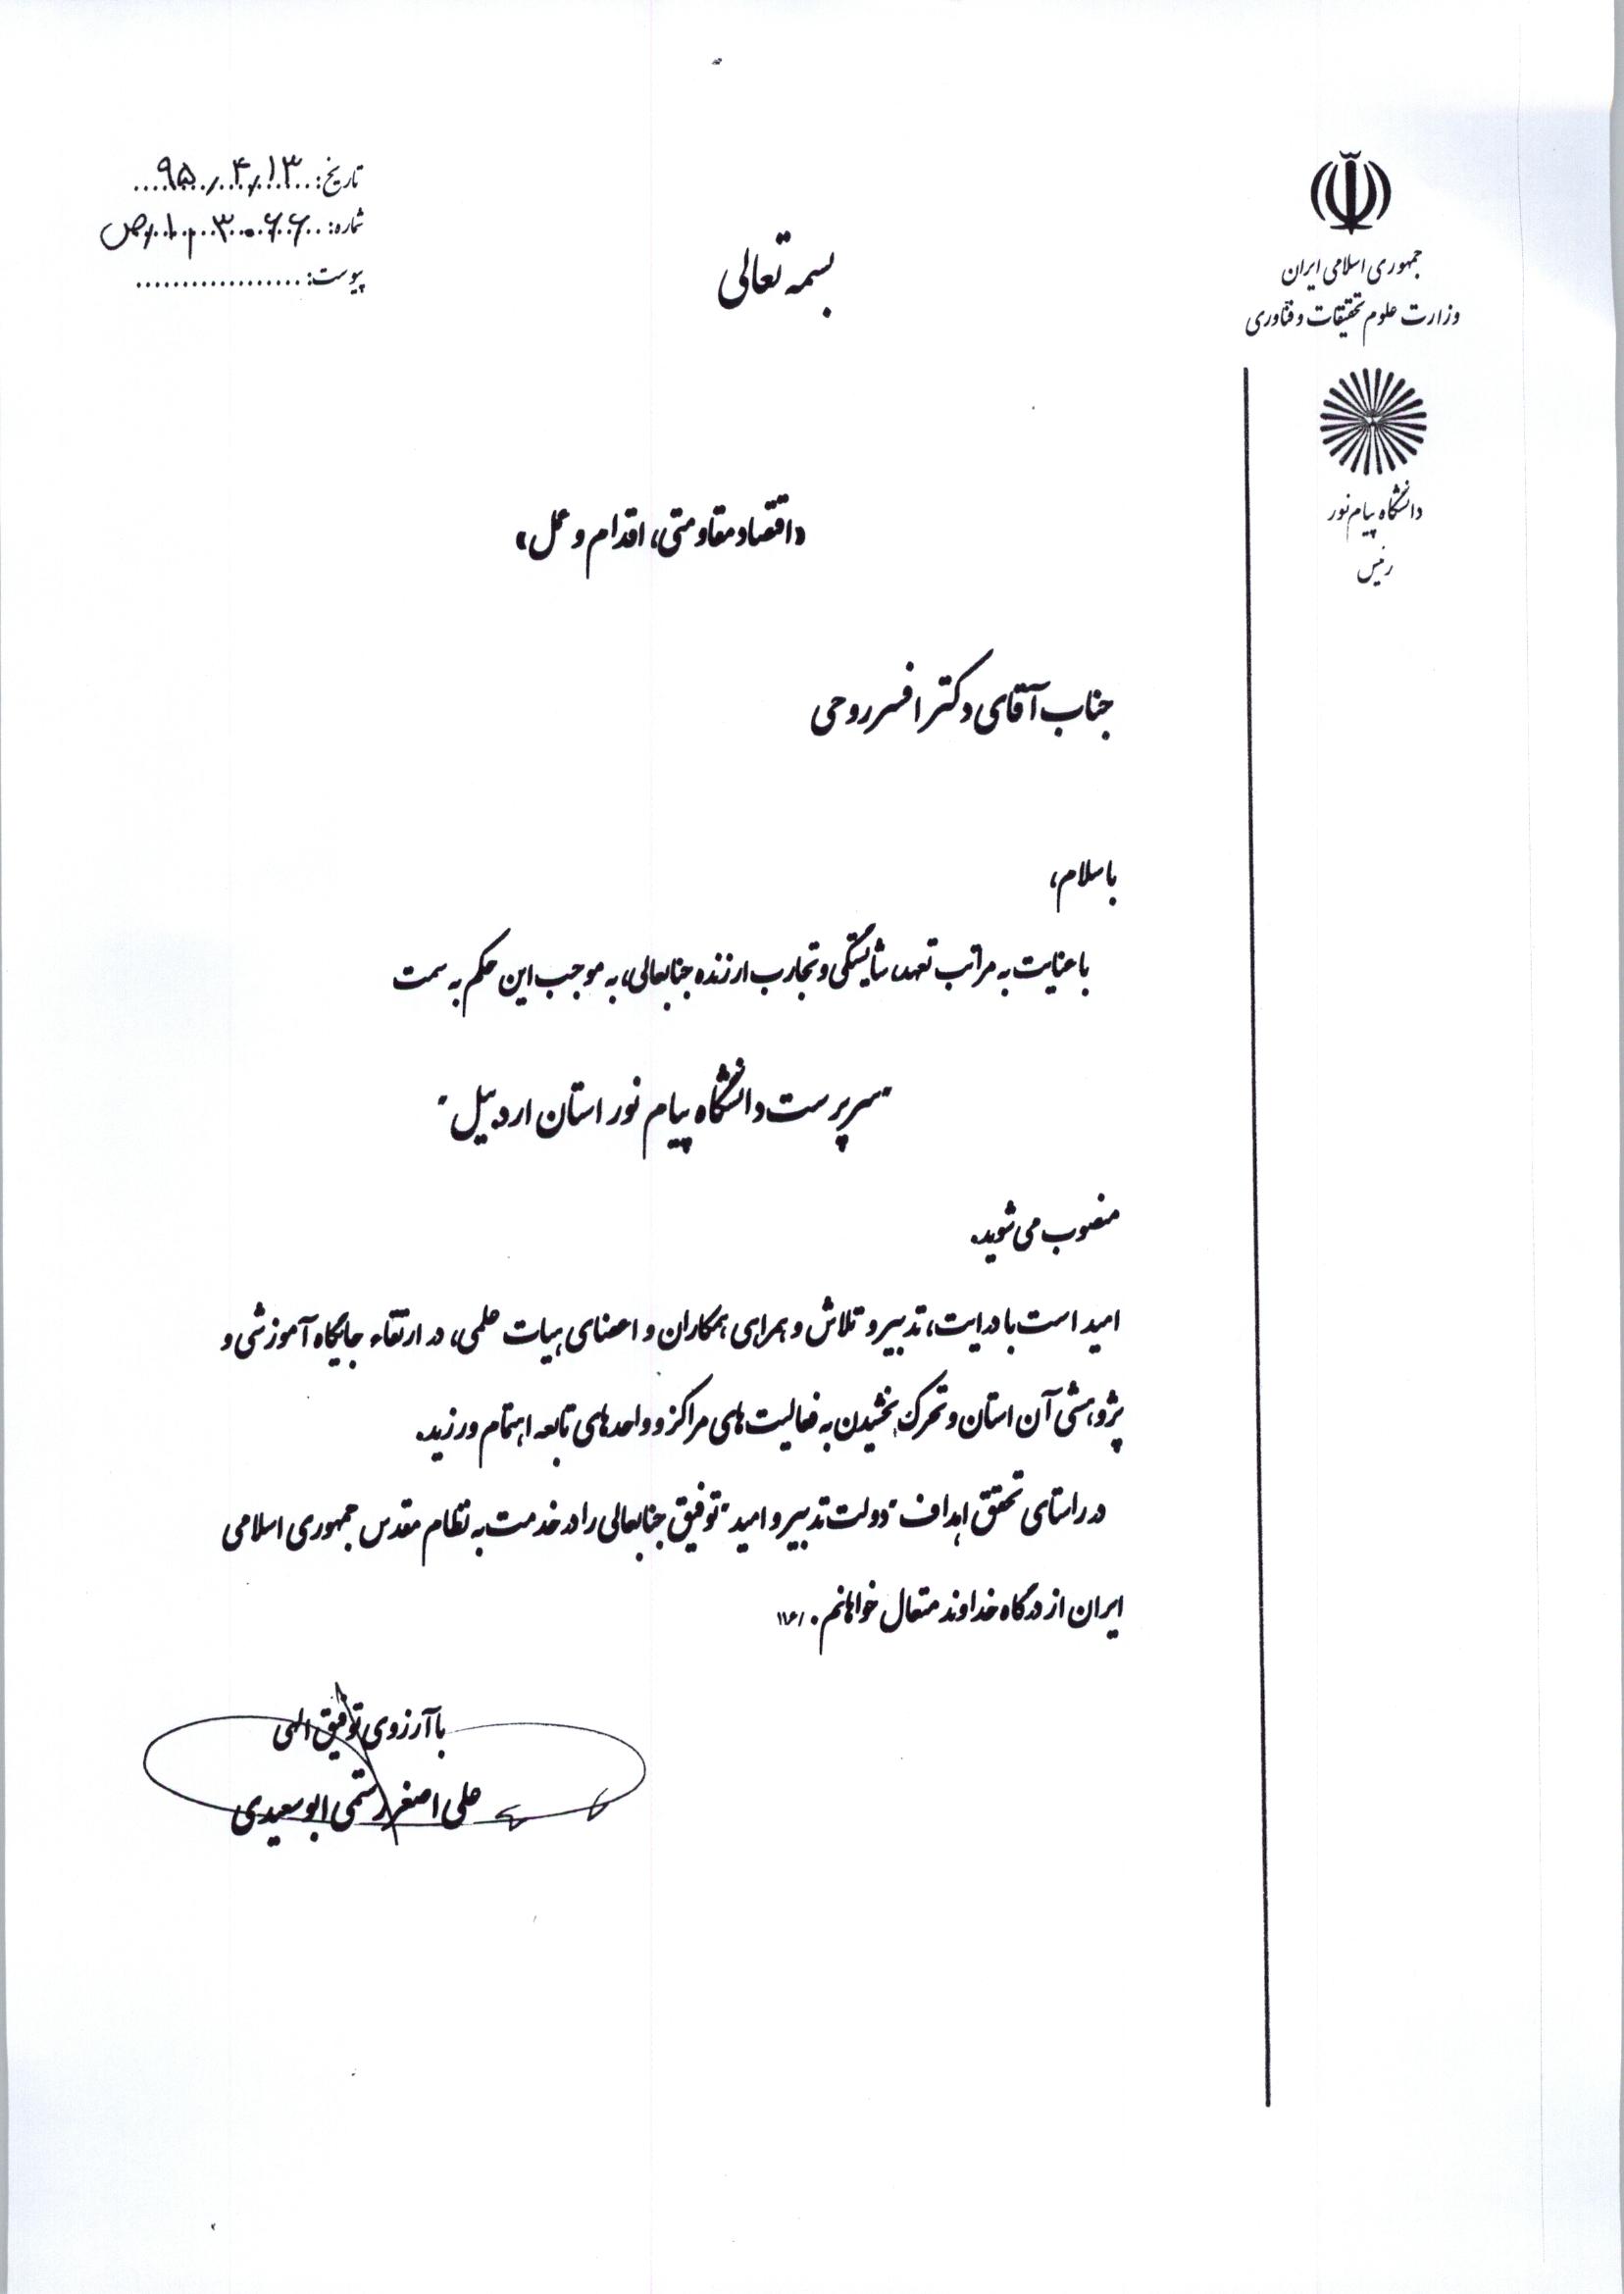 جمهوری اسلامی ایران
وزارت علوم تحقیقات و فناوری
دانشگاه پیام نور
رئیس
تاریخ: ۹۵/۴/۱۳
شماره:
پیوست:
بسمه تعالی
«اقتصاد مقاومتی، اقدام و عمل»
جناب آقای دکتر افسر روحی
با سلام،
با عنایت به مراتب تعهد، شایستگی و تجارب ارزنده جنابعالی، به موجب این حکم به سمت
"سرپرست دانشگاه پیام نور استان اردبیل"
منصوب می شوید.
امید است با درایت، تدبیر و تلاش و همراهی همکاران و اعضای هیات علمی، در ارتقاء جایگاه آموزشی و
پژوهشی آن استان و تحرک بخشیدن به فعالیت های مراکز و واحدهای تابعه اهتمام ورزید.
در راستای تحقق اهداف "دولت تدبیر و امید" توفیق جنابعالی را در خدمت به نظام مقدس جمهوری اسلامی
ایران از درگاه خداوند متعال خواهانم.
با آرزوی توفیق الهی
علی اصغر رستمی ابوسعیدی